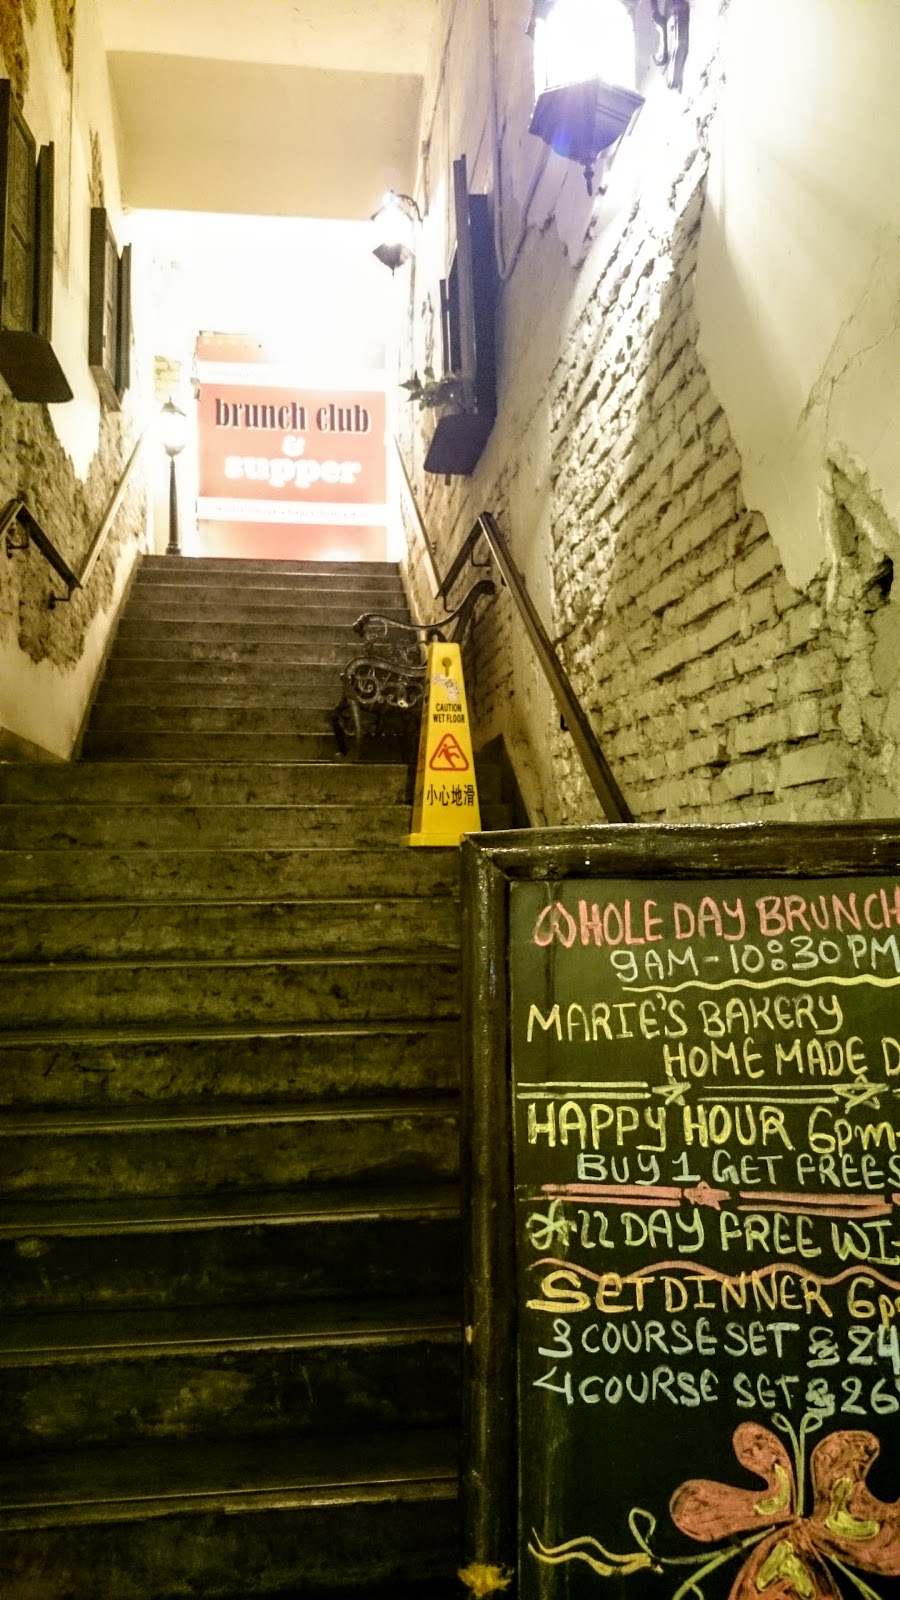 brunch club
&
supper
CAUTION
WET FLOOR
小心地滑
WHOLE DAY BRUNCH
9AM-10:30PM
MARIE'S BAKERY
HOME MADE D
HAPPY HOUR 6pm-
BUY 1 GET FREE
ALL DAY FREE WI-
SET DINNER 6p
3 COURSE SET $24
4 COURSE SET $26